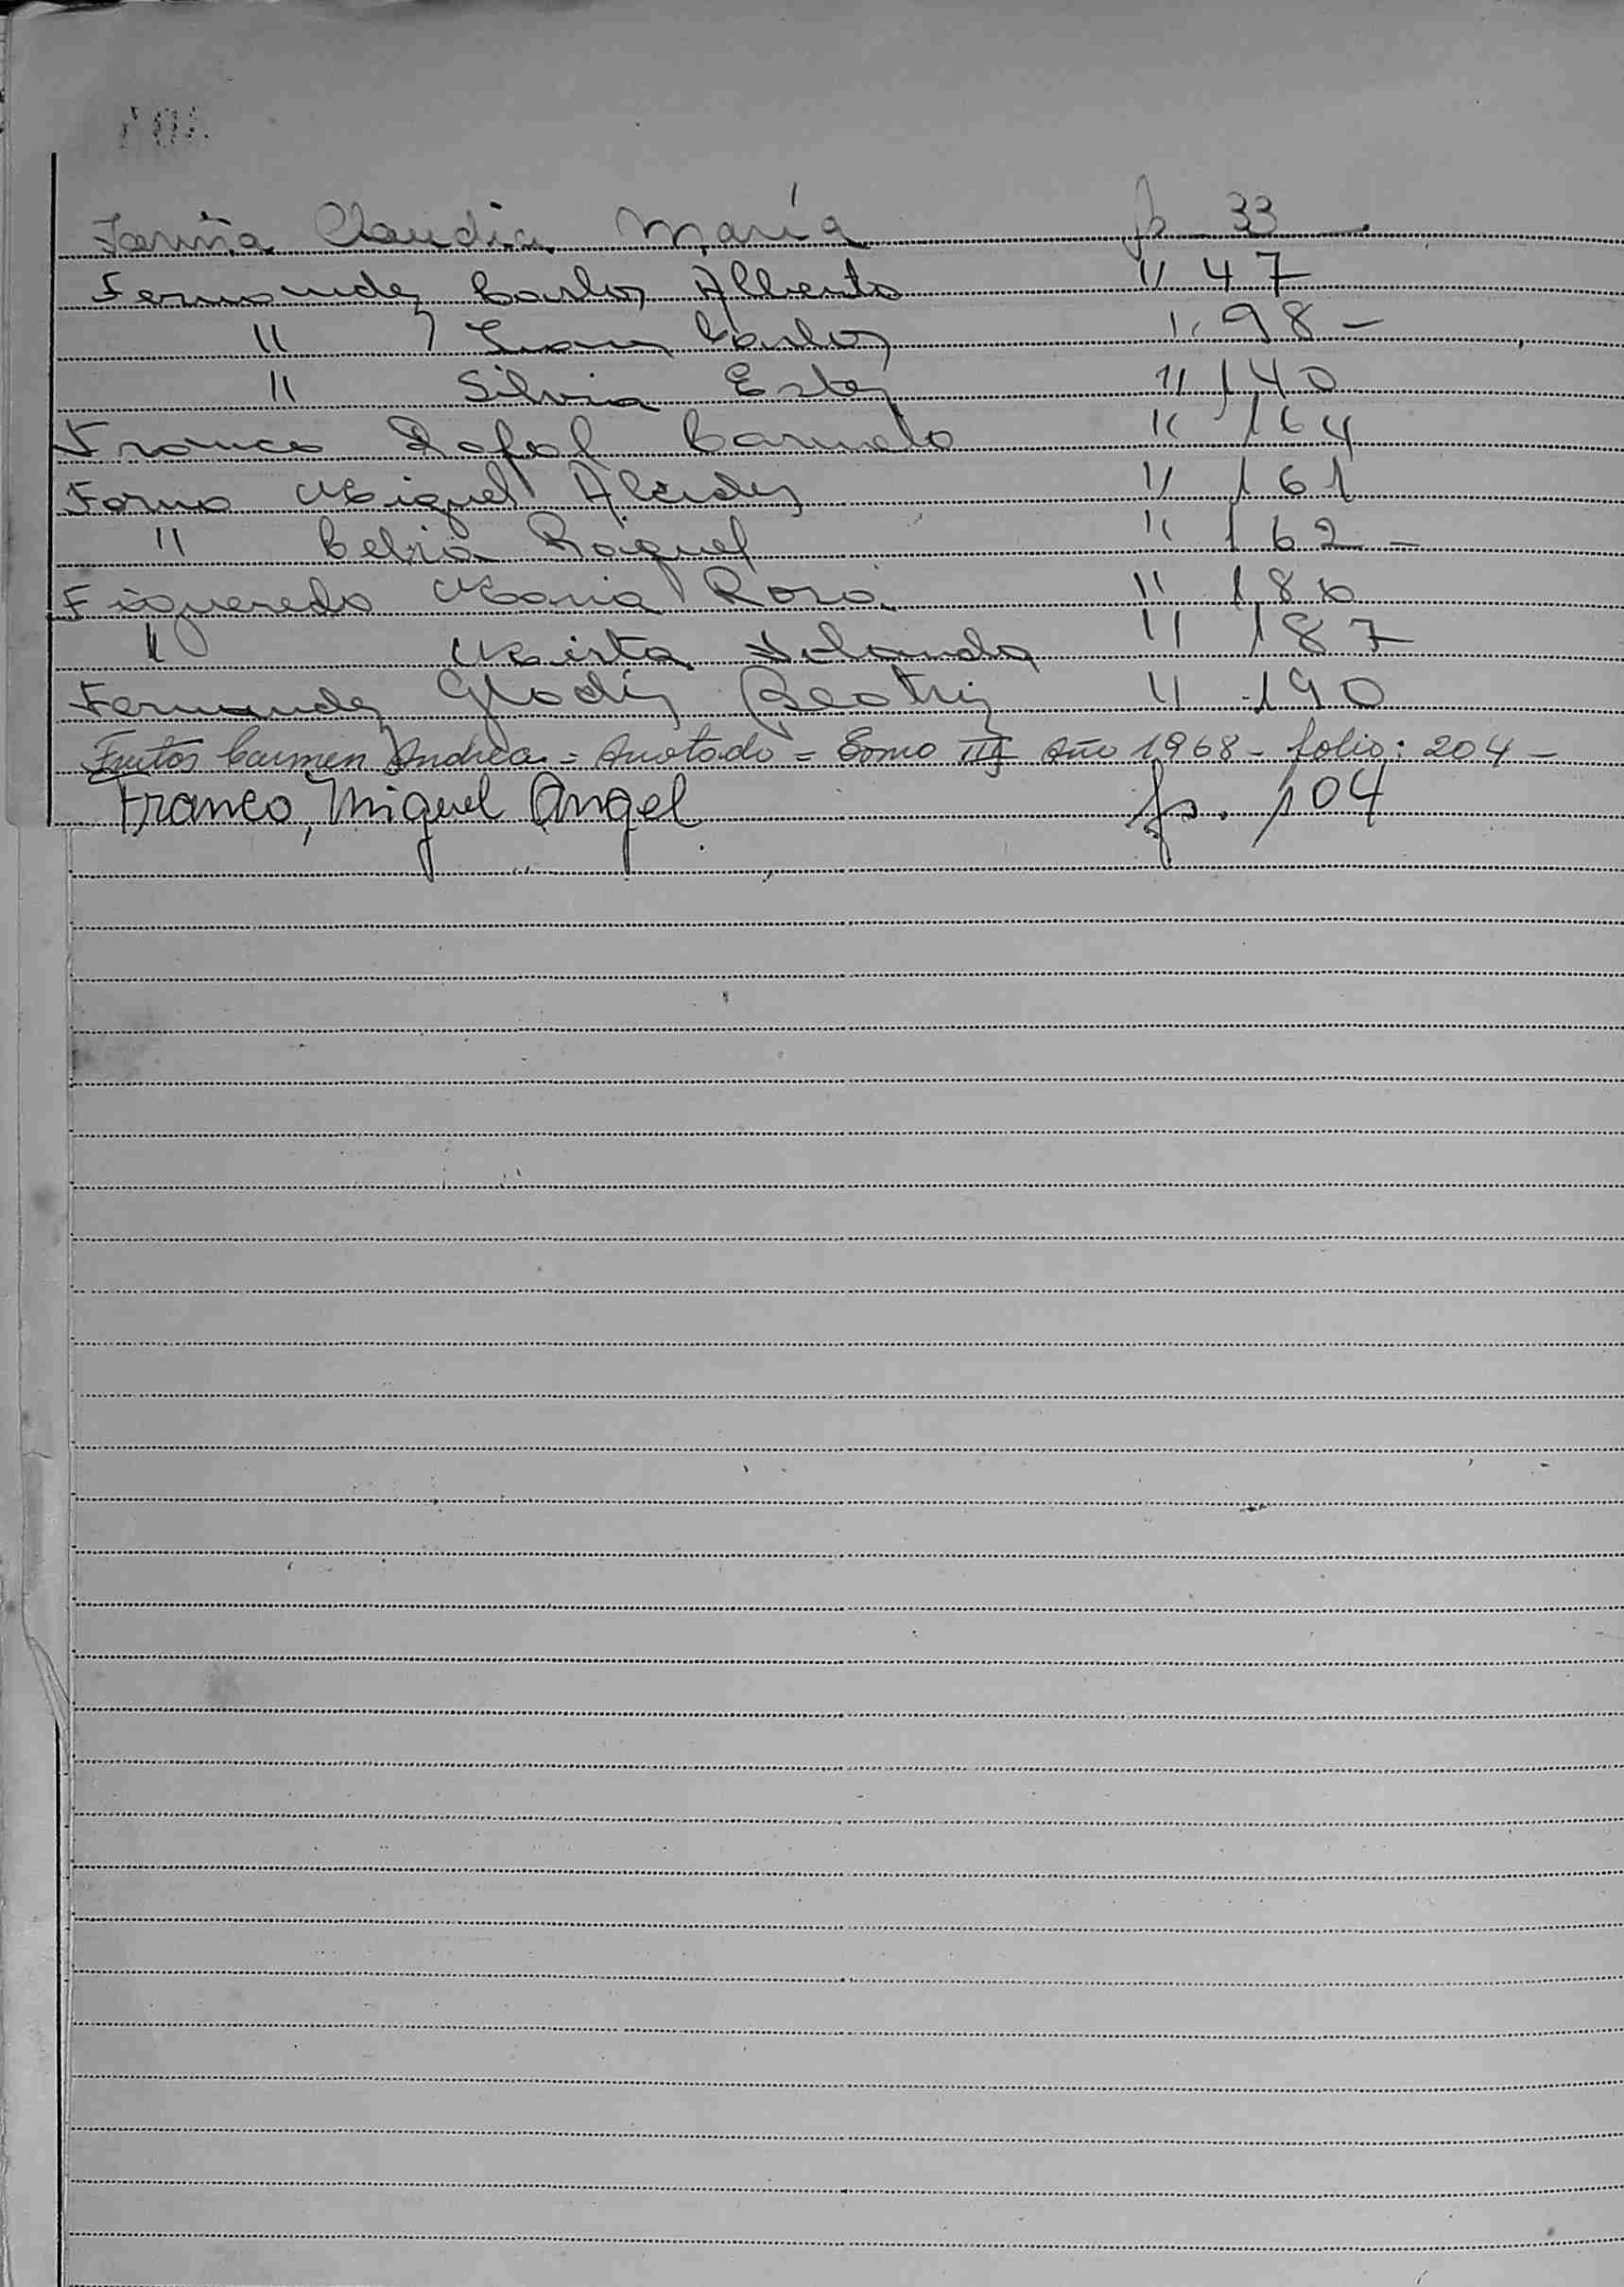 Fariña Claudia María fs 33 -.
Fernandez Carlos Alberto " 47
" Juan Carlos " 98 -
" Silvia Ester " 140
Franco Rafael Carmelo " 164
Forno Miguel Alcides " 161
" Celia Raquel " 162 -
Figueredo Maria Rosa " 180
" Mirta Yolanda " 187
Fernandez Gladis Beatriz " 190
Frutos Carmen Andrea = Anotado = Tomo III Año 1968 - folio: 204 -
Franco, Miguel Angel fs. 104